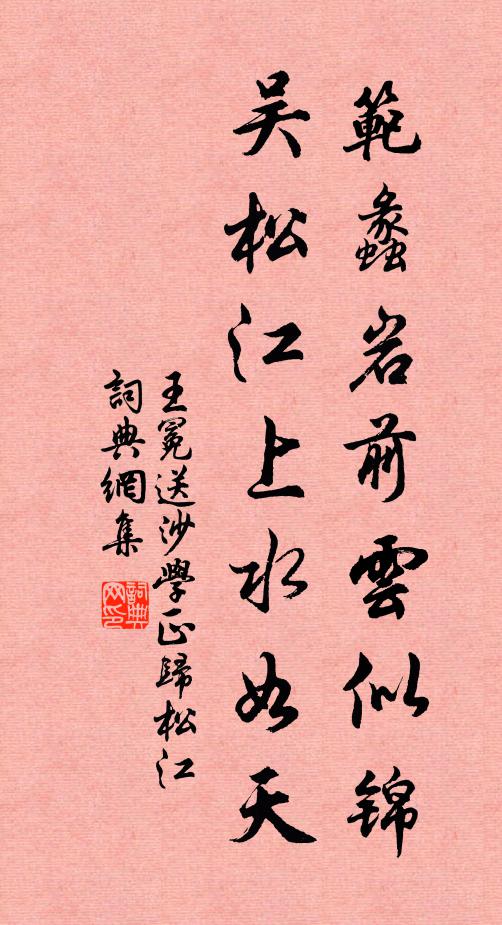 範蠡岩前雲似錦
吴松江上水如天
王冕送沙學正歸松江
詞典網集
詞典网印